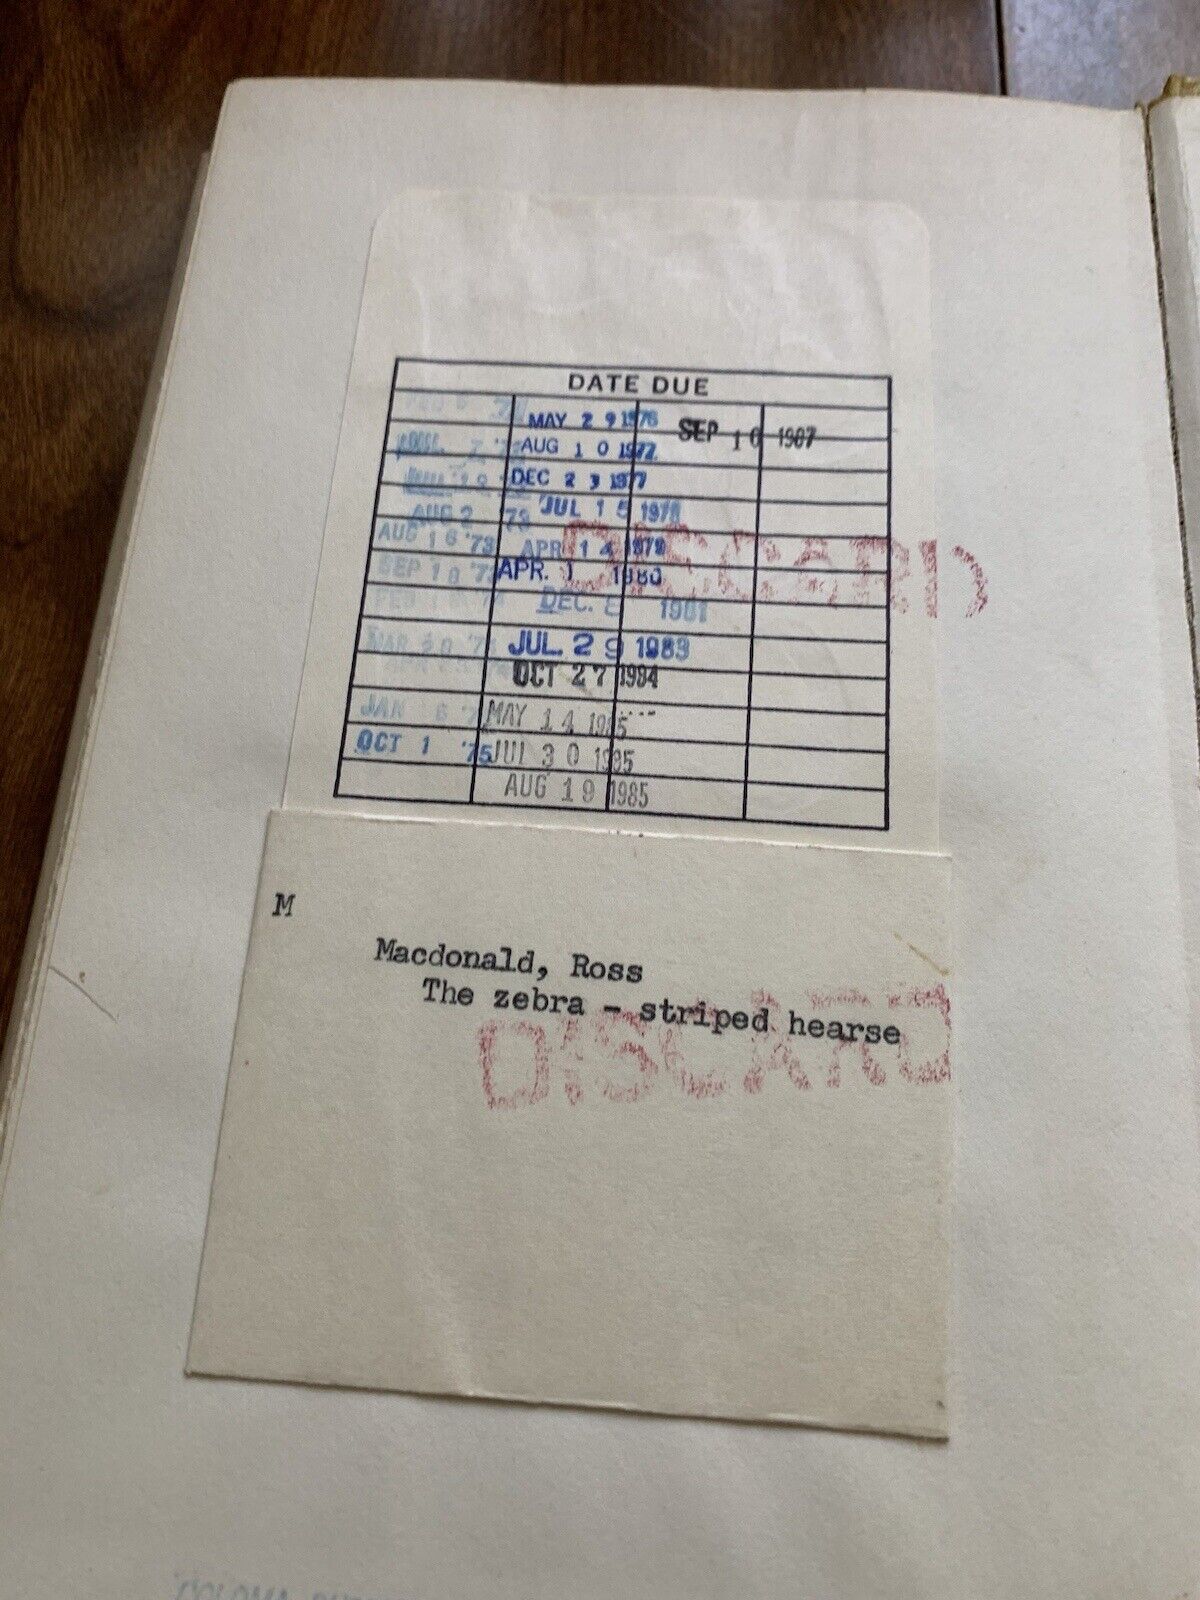 DATE DUE
MAY 29 1976
SEP 10 1987
AUG 10 1977
DEC 23 1977
AUG 2 '73
JUL 15 1978
AUG 16 '73
APR 14 1979
SEP 18
APR. 1 1980
DEC. 1981
MAR 20
JUL. 29 1983
OCT 27 1984
JAN 6
MAY 14 1985
OCT 1 '75
JUL 30 1985
AUG 19 1985
DISCARD
M
Macdonald, Ross
The zebra - striped hearse
DISCARD
COLOMA